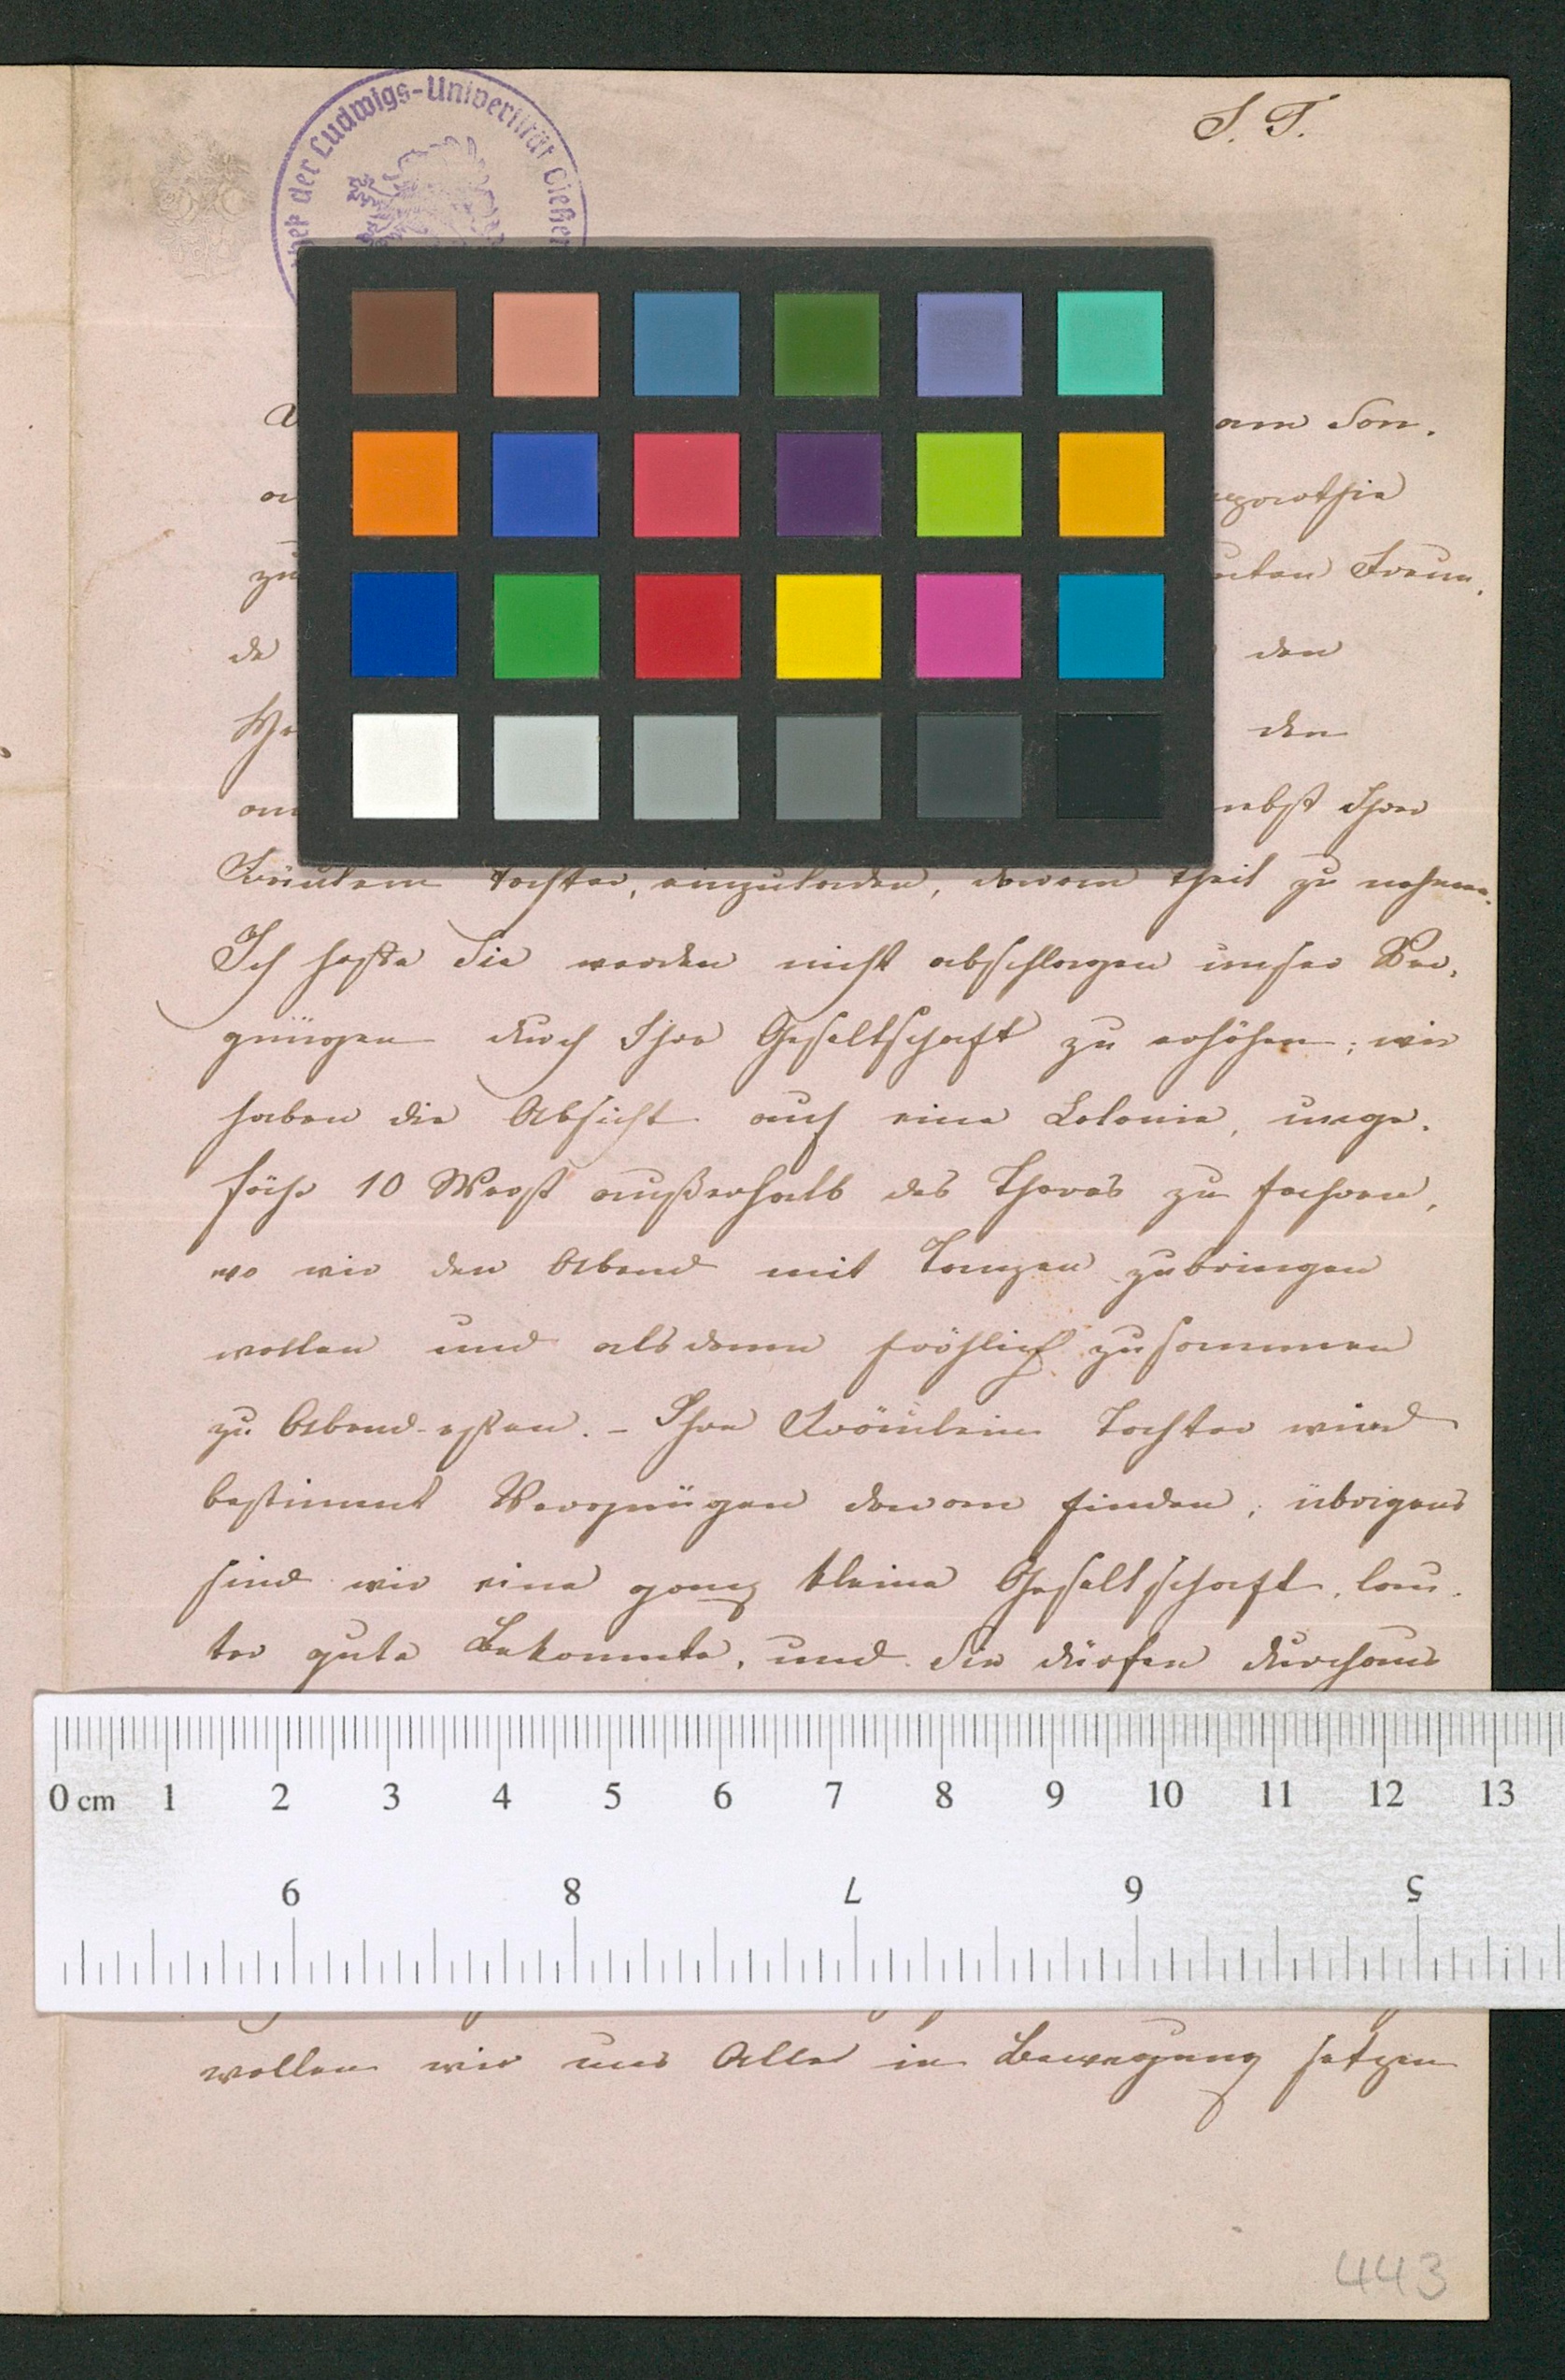 S. T.
der Ludwigs-Universität Gießen
am Son.
zu
Freun.
de den
den
nebst Ihrer
Fräulein Tochter, einzuladen, daran theil zu nehmen.
Ich hoffe Sie werden nicht abschlagen unser Ver,
gnügen durch Ihre Gesellschaft zu erhöhen; wir
haben die Absicht auf eine Colonie, unge.
fähr 10 Werst außerhalb des Thores zu fahren,
wo wir den Abend mit Tanzen zubringen
wollen und alsdann fröhlich zusammen
zu Abend essen. – Ihre Fräulein Tochter wird
bestimmt Vergnügen daran finden, übrigens
sind wir eine ganz kleine Gesellschaft, lau.
ter gute Bekannte, und Sie dürfen durchaus
0 cm 1 2 3 4 5 6 7 8 9 10 11 12 13
9 8 7 6 5
wollen wir uns Alle in Bewegung setzen
443